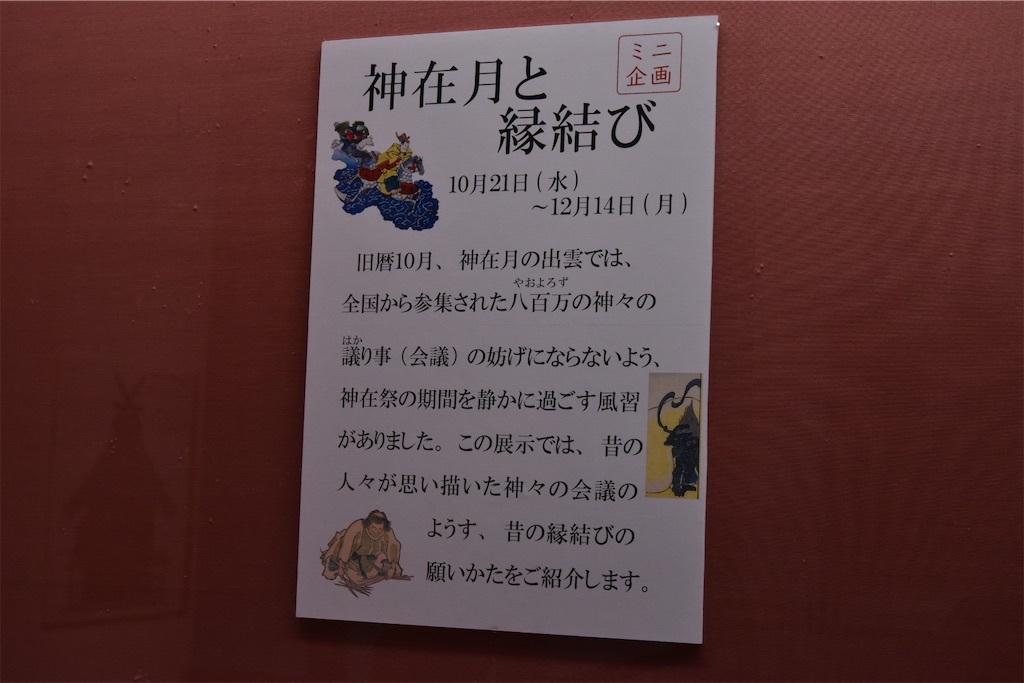 ミニ
企画
神在月と
縁結び
10月21日(水)
～12月14日(月)
旧暦10月、神在月の出雲では、
やおよろず
全国から参集された八百万の神々の
はか
議り事(会議)の妨げにならないよう、
神在祭の期間を静かに過ごす風習
がありました。この展示では、昔の
人々が思い描いた神々の会議の
ようす、昔の縁結びの
願いかたをご紹介します。